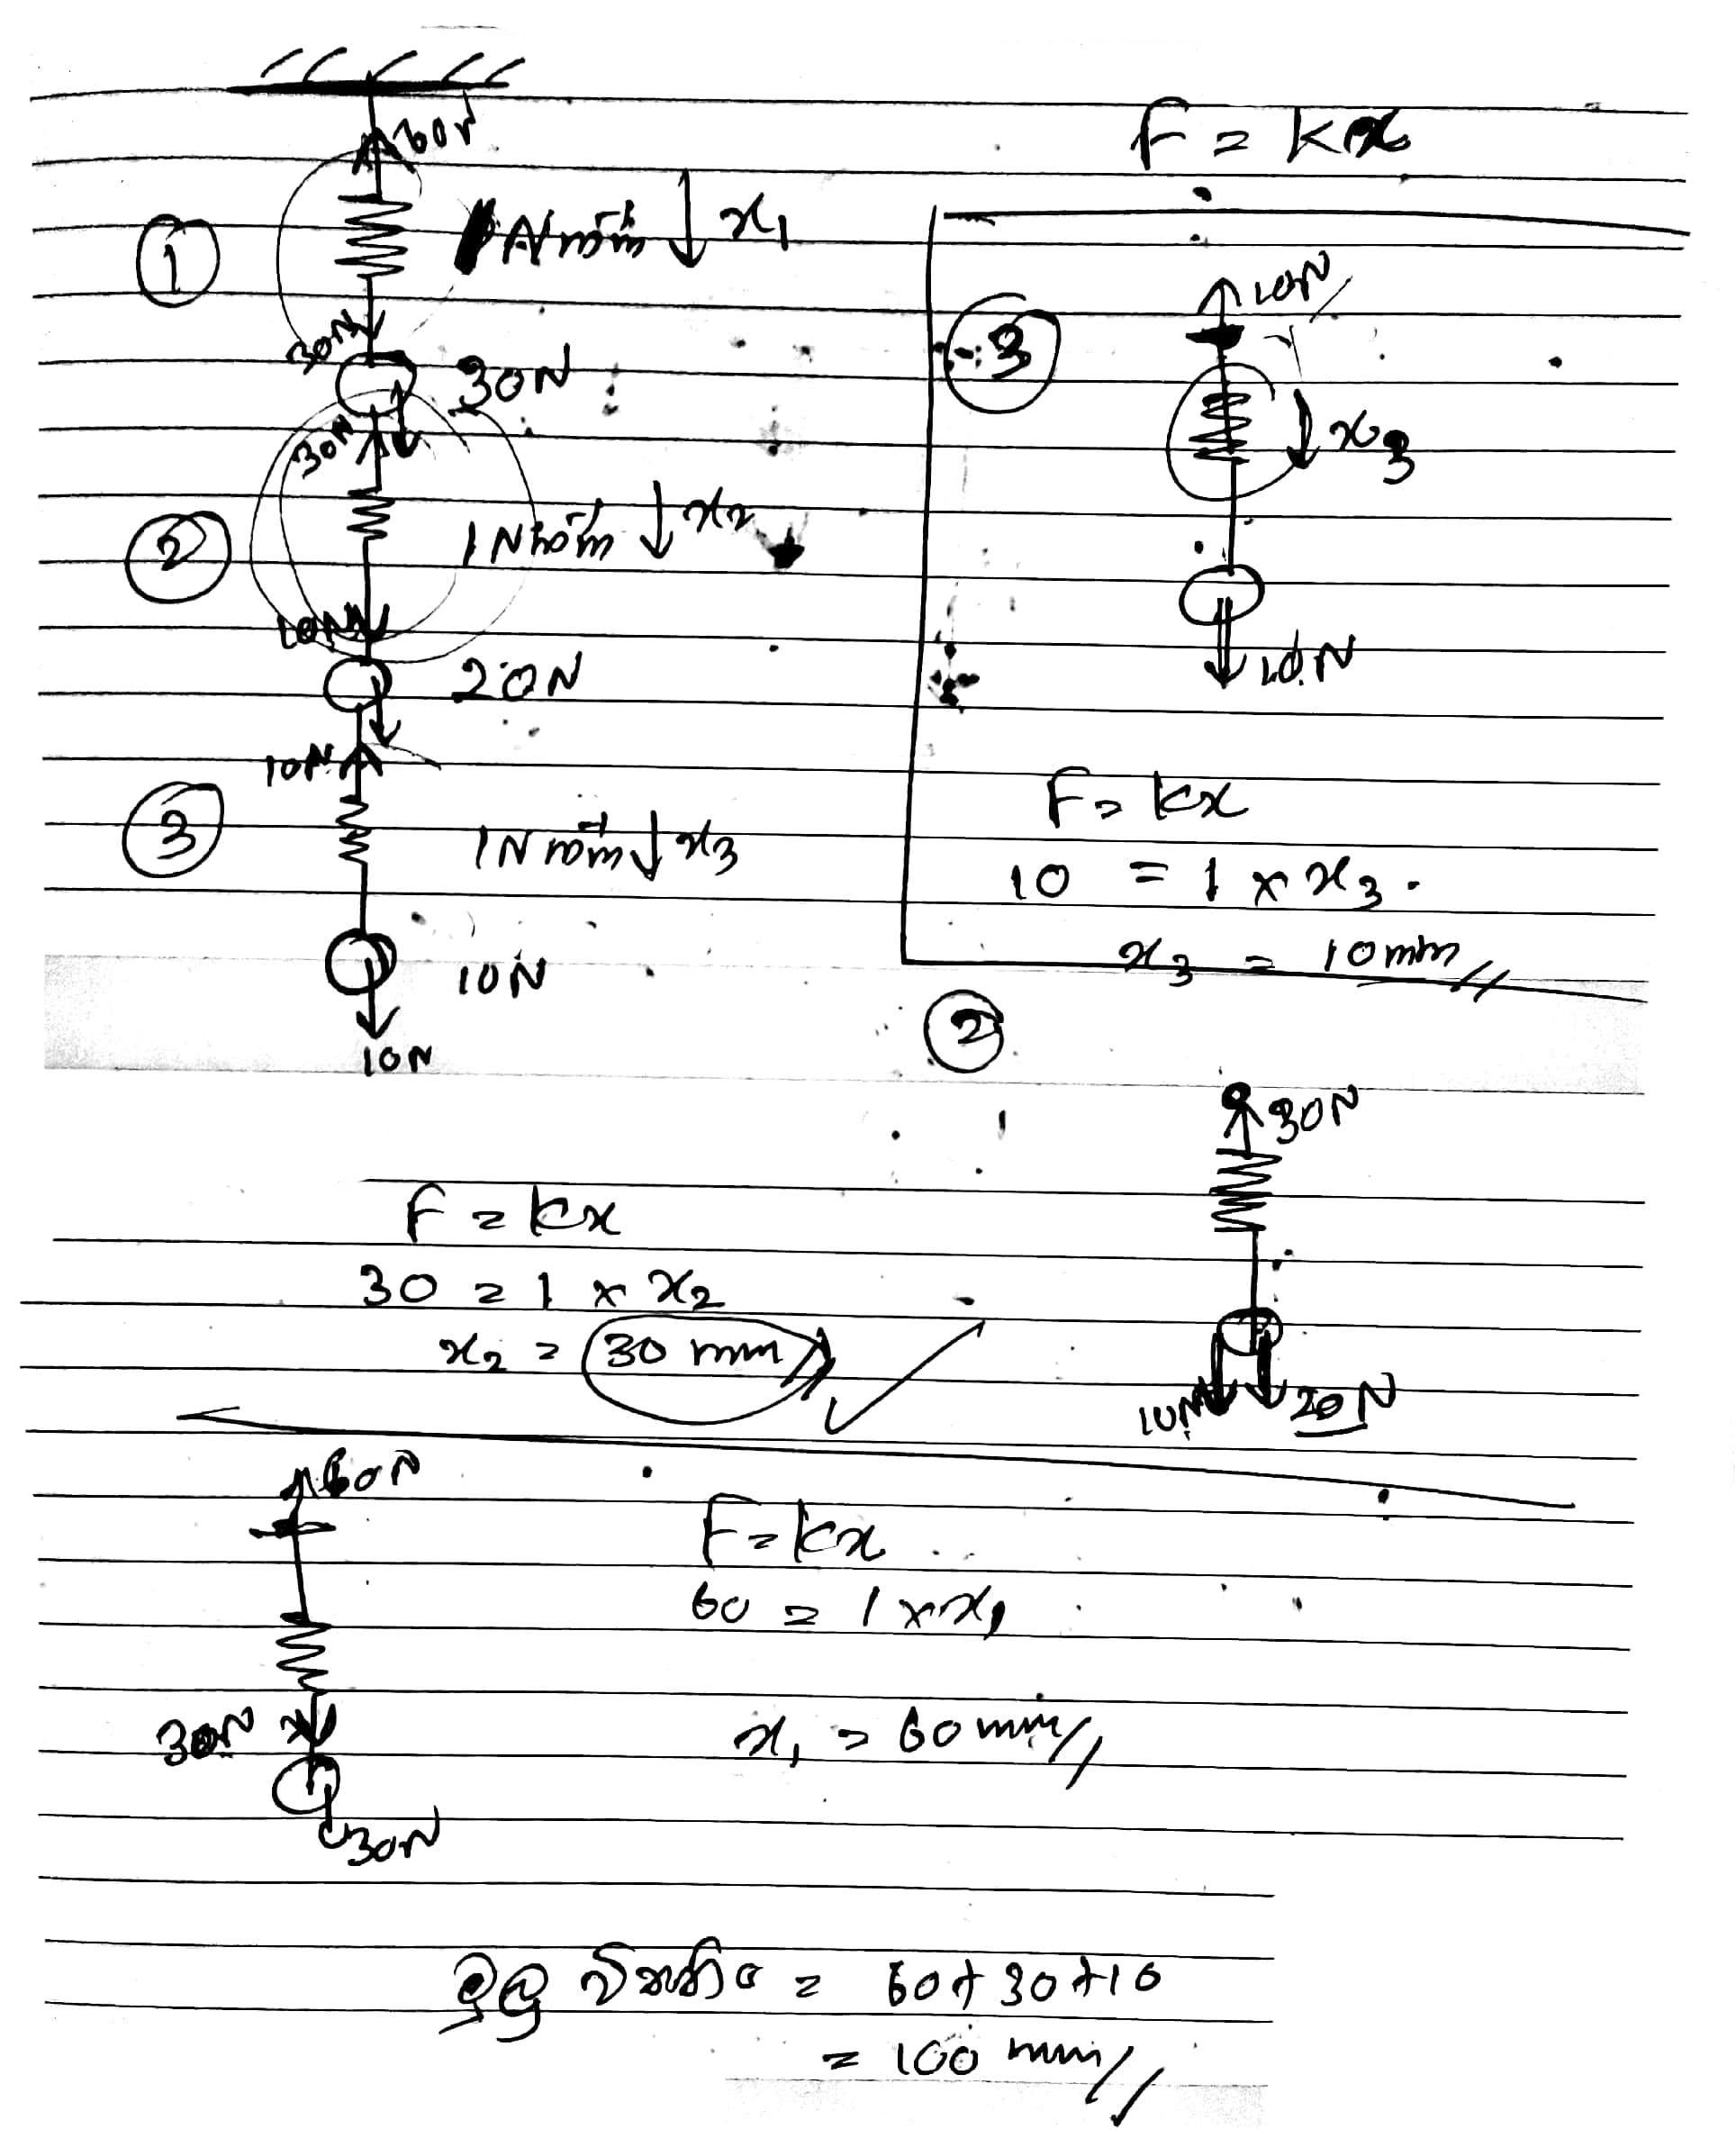 60N
①
1 Nmm⁻¹ ↓ x₁
30N
30N
30N
②
1 Nmm⁻¹ ↓ x₂
10N
20N
10N
③
1 Nmm⁻¹ ↓ x₃
10N
10N
F = kx
③
10N
x₃
10N
F = kx
10 = 1 × x₃
x₃ = 10mm //
②
30N
10N
20N
F = kx
30 = 1 × x₂
x₂ = 30 mm //
60N
30N
30N
F = kx
60 = 1 × x₁
x₁ = 60 mm //
මුලු විතතිය = 60 + 30 + 10
= 100 mm //